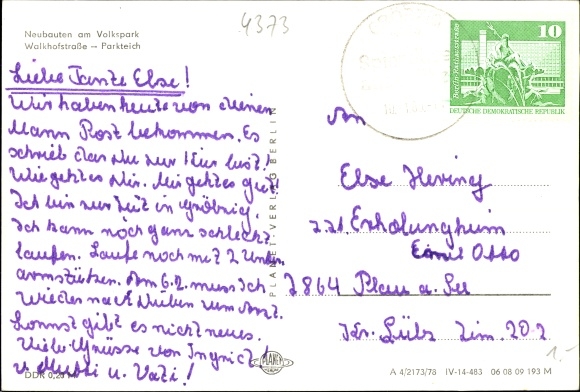 4373
Neubauten am Volkspark
Walkhofstraße – Parkteich
Liebe Tante Else!
Wir haben heute von deinen
Mann Post bekommen. Es
schrieb das du zur Kur bist!
Wie geht es dir. Mir geht es gut
Ich bin zur Zeit in
Ich kann noch ganz schlecht
laufen. Laufe noch mit 2 Unter
armstützen. Am 6.2. muss ich
wieder nach zum Arzt.
Sonst gibt es nicht neues.
Viele Grüsse von Ingrid
u. Mutti u. Vati!
DDR 0,20 M
PLANET-VERLAG BERLIN
PLANET
10
Berlin-Rathausstraße
DEUTSCHE DEMOKRATISCHE REPUBLIK
An
Else Hering
z.Zt. Erholungheim
Emil Otto
2864 Plau a. See
Kr. Lübz Zim. 202
1.-
A 4/2173/78 IV-14-483 06 08 09 193 M